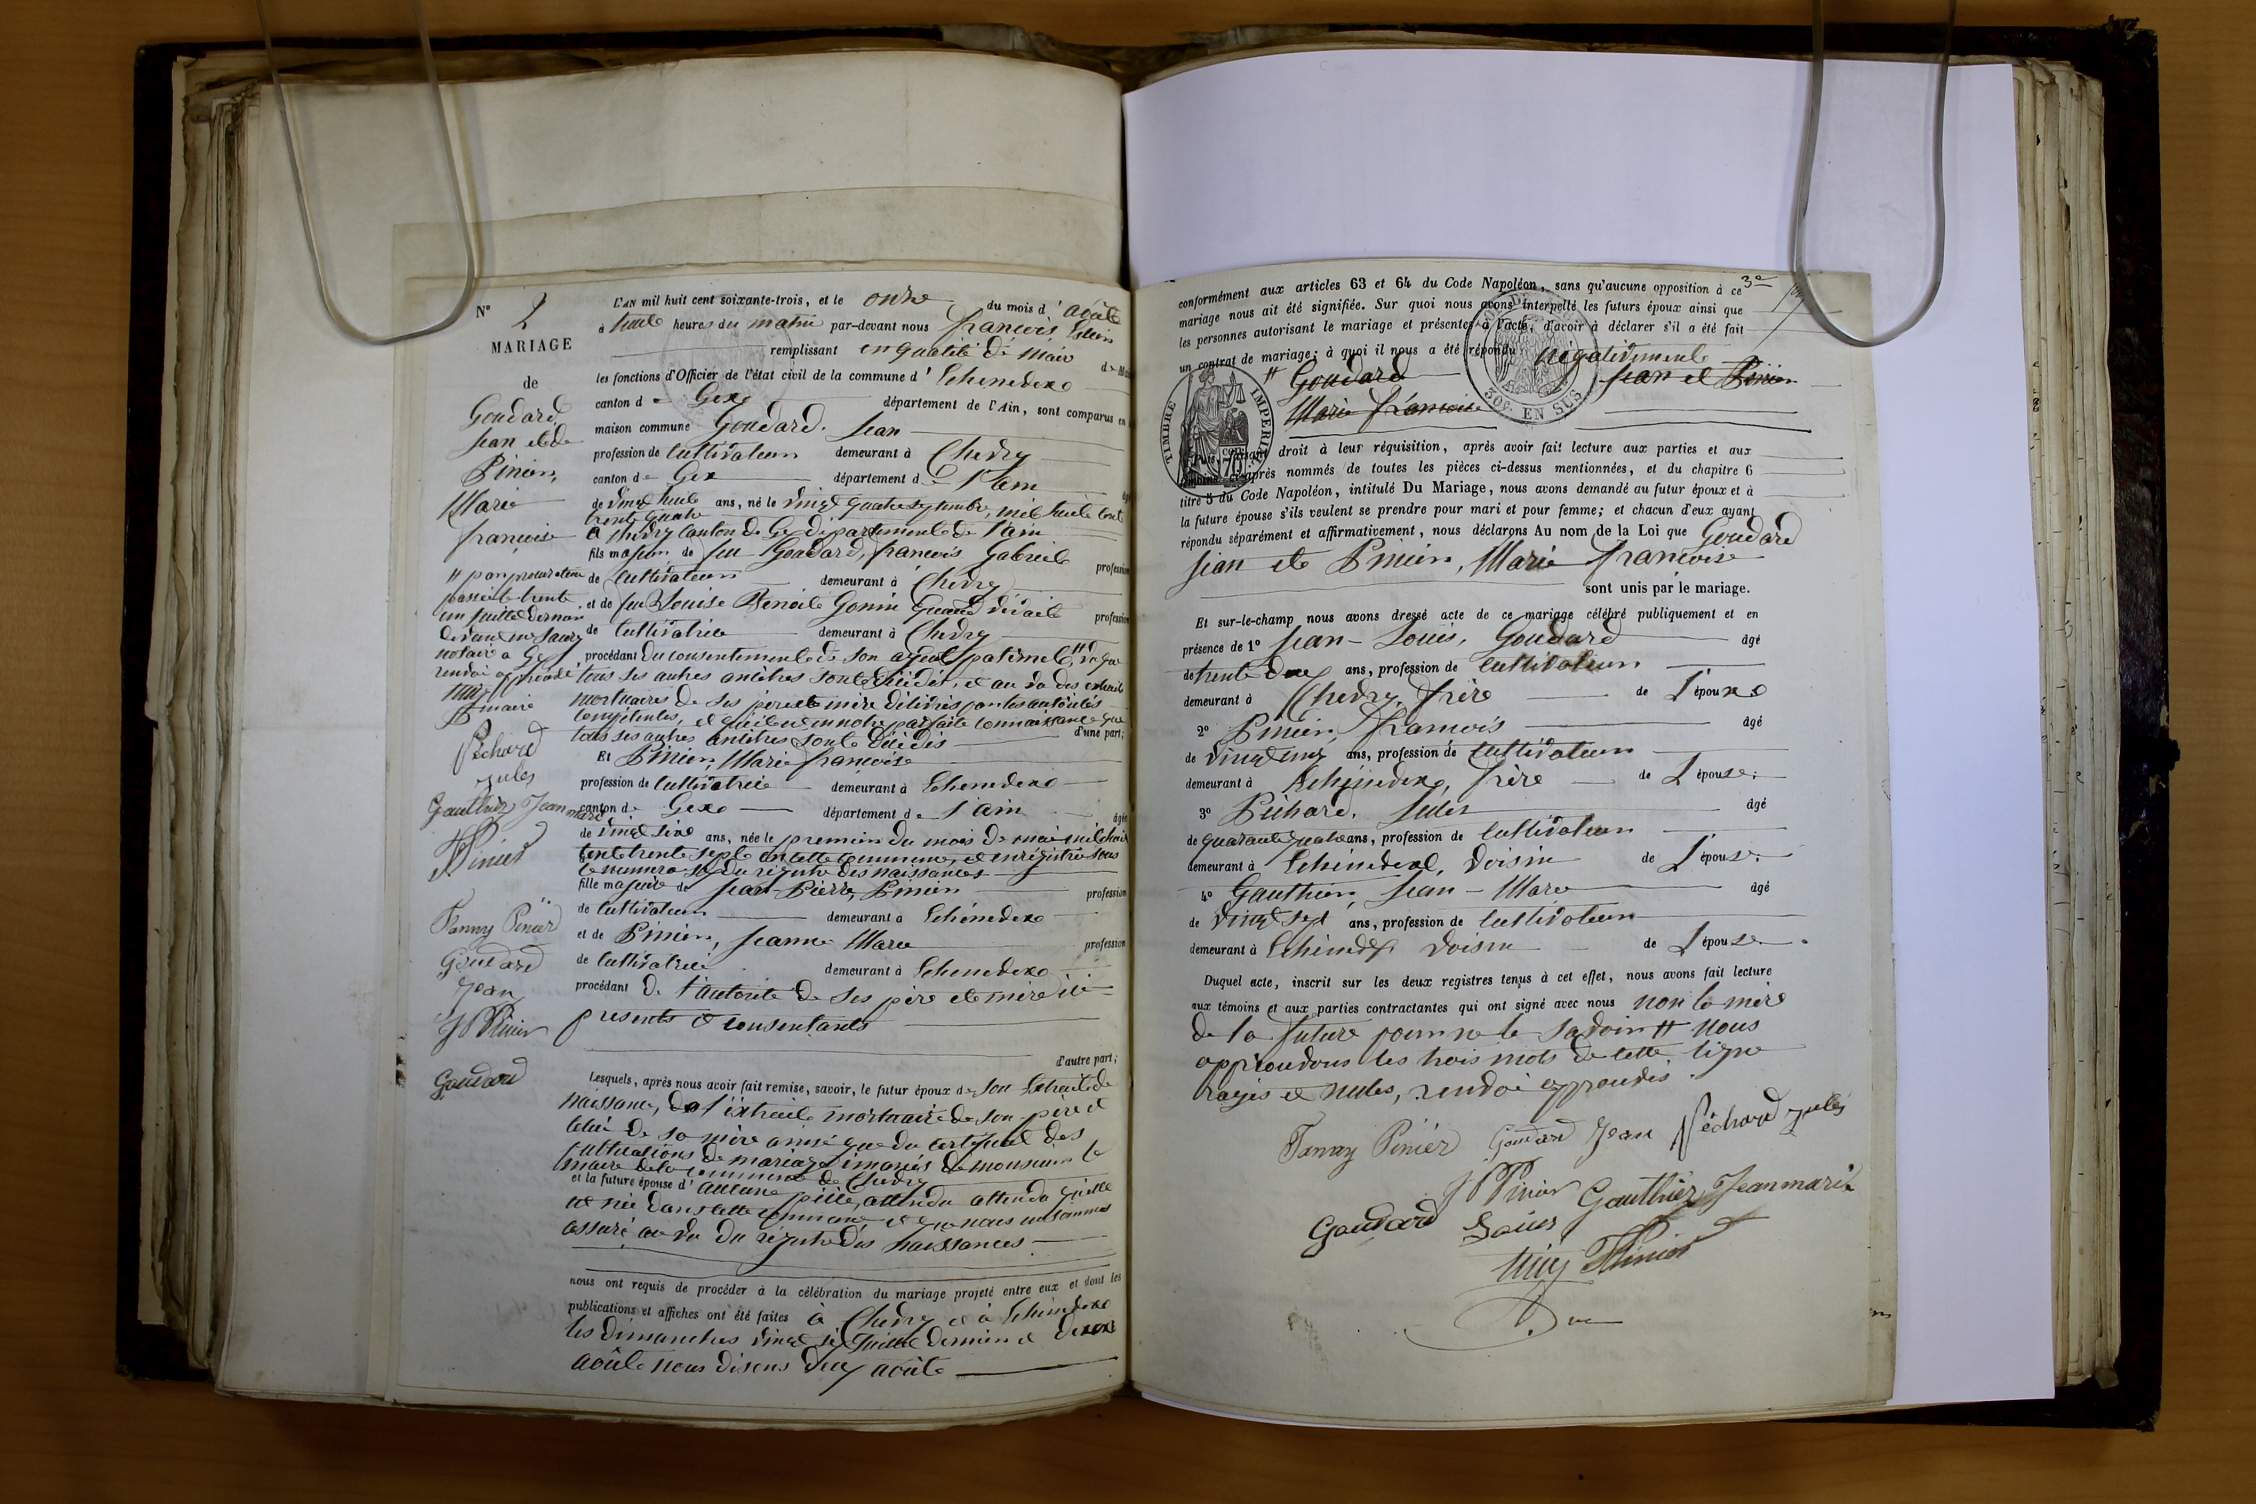 N° 2
MARIAGE
de
Goudard,
Jean et de
Pinier,
Marie
françoise
# par procuration
passée le trente
un juillet dernier
devant me
notaire à Gex
renvoi approuvé
maire
Péchard
jules
Gauthier Jean marie
Pinier
Fanny Pinier
Goudard
Jean
J P Pinier
Goudard
L'AN mil huit cent soixante-trois, et le onze du mois d'août
à huit heures du matin par-devant nous françois
remplissant en qualité de maire
les fonctions d'Officier de l'état civil de la commune d' Echenevex
canton de Gex département de l'Ain, sont comparus en
maison commune Goudard. Jean
profession de Cultivateur demeurant à Chevry
canton de Gex département de l'ain
de vingt huit ans, né le vingt quatre septembre, mil huit cent
trente quatre
à Chevry canton de Gex département de l'ain
fils majeur de feu Goudard, françois Gabriel profession
de Cultivateur demeurant à Chevry
et de feu Louise Benoite Gonin quand vivait profession
de Cultivatrice demeurant à Chevry
procédant du consentement de son ayeul paternel, # vu que
tous ses autres ancêtres sont décédés, et au vu des extraits
mortuaires de ses père et mère délivrés par les autorités
compétentes, et qu'il est à notre parfaite connaissance que
tous ses autres ancêtres sont décédés d'une part;
Et Pinier, Marie françoise
profession de Cultivatrice demeurant à Echenevex
canton de Gex département de l'ain âgée
de vingt six ans, née le premier du mois de mai mil huit
cent trente sept en cette commune, et enregistré sous
le numero du régistre des naissances
fille majeure de Jean-Pierre, Pinier profession
de Cultivateur demeurant à Echenevex
et de Pinier, Jeanne Marie profession
de Cultivatrice demeurant à Echenevex
procédant de l'autorité de ses père et mère ici
présents et consentants
d'autre part;
Lesquels, après nous avoir fait remise, savoir, le futur époux de son Extrait de
naissance, de l'extrait mortuaire de son père et
celui de sa mère ainsi que du certificat des
publications de mariage émanés de monsieur le
maire de la commune de Chevry
et la future épouse d'aucune pièce, attendu attendu qu'elle
est née dans cette commune et que nous nous sommes
assuré au vu du régistre des naissances
nous ont requis de procéder à la célébration du mariage projeté entre eux et dont les
publications et affiches ont été faites à Chevry et à Echenevex
les dimanches vingt six juillet dernier et deux
août nous disons deux août
3e
conformément aux articles 63 et 64 du Code Napoléon, sans qu'aucune opposition à ce
mariage nous ait été signifiée. Sur quoi nous avons interpellé les futurs époux ainsi que
les personnes autorisant le mariage et présentes à l'acte, d'avoir à déclarer s'il a été fait
un contrat de mariage; à quoi il nous a été répondu négativement
# Goudard Jean et Pinier
Marie françoise
TIMBRE IMPERIAL
50c. EN SUS
Puis, faisant droit à leur réquisition, après avoir fait lecture aux parties et aux
témoins ci-après nommés de toutes les pièces ci-dessus mentionnées, et du chapitre 6
titre 5 du Code Napoléon, intitulé Du Mariage, nous avons demandé au futur époux et à
la future épouse s'ils veulent se prendre pour mari et pour femme; et chacun d'eux ayant
répondu séparément et affirmativement, nous déclarons Au nom de la Loi que Goudard
Jean et Pinier, Marie françoise
sont unis par le mariage.
Et sur-le-champ nous avons dressé acte de ce mariage célébré publiquement et en
présence de 1° Jean-Louis, Goudard âgé
de trente deux ans, profession de Cultivateur
demeurant à Chevry, frère de L'époux
2° Pinier, françois âgé
de vingt cinq ans, profession de Cultivateur
demeurant à Echenevex, frère de L'épouse.
3° Péchard. Jules âgé
de quarante quatre ans, profession de Cultivateur
demeurant à Echenevex, voisin de L'épouse.
4° Gauthier, Jean-Marie âgé
de vingt sept ans, profession de Cultivateur
demeurant à Echenevex voisin de L'épouse.
Duquel acte, inscrit sur les deux registres tenus à cet effet, nous avons fait lecture
aux témoins et aux parties contractantes qui ont signé avec nous non la mère
de la future pour ne le savoir # nous
approuvons les trois mots de cette ligne
rayés et nules, renvoi approuvés.
Fanny Pinier Goudard Jean Péchard jules
J P Pinier Gauthier Jean marie
Goudard Louis
Pinier